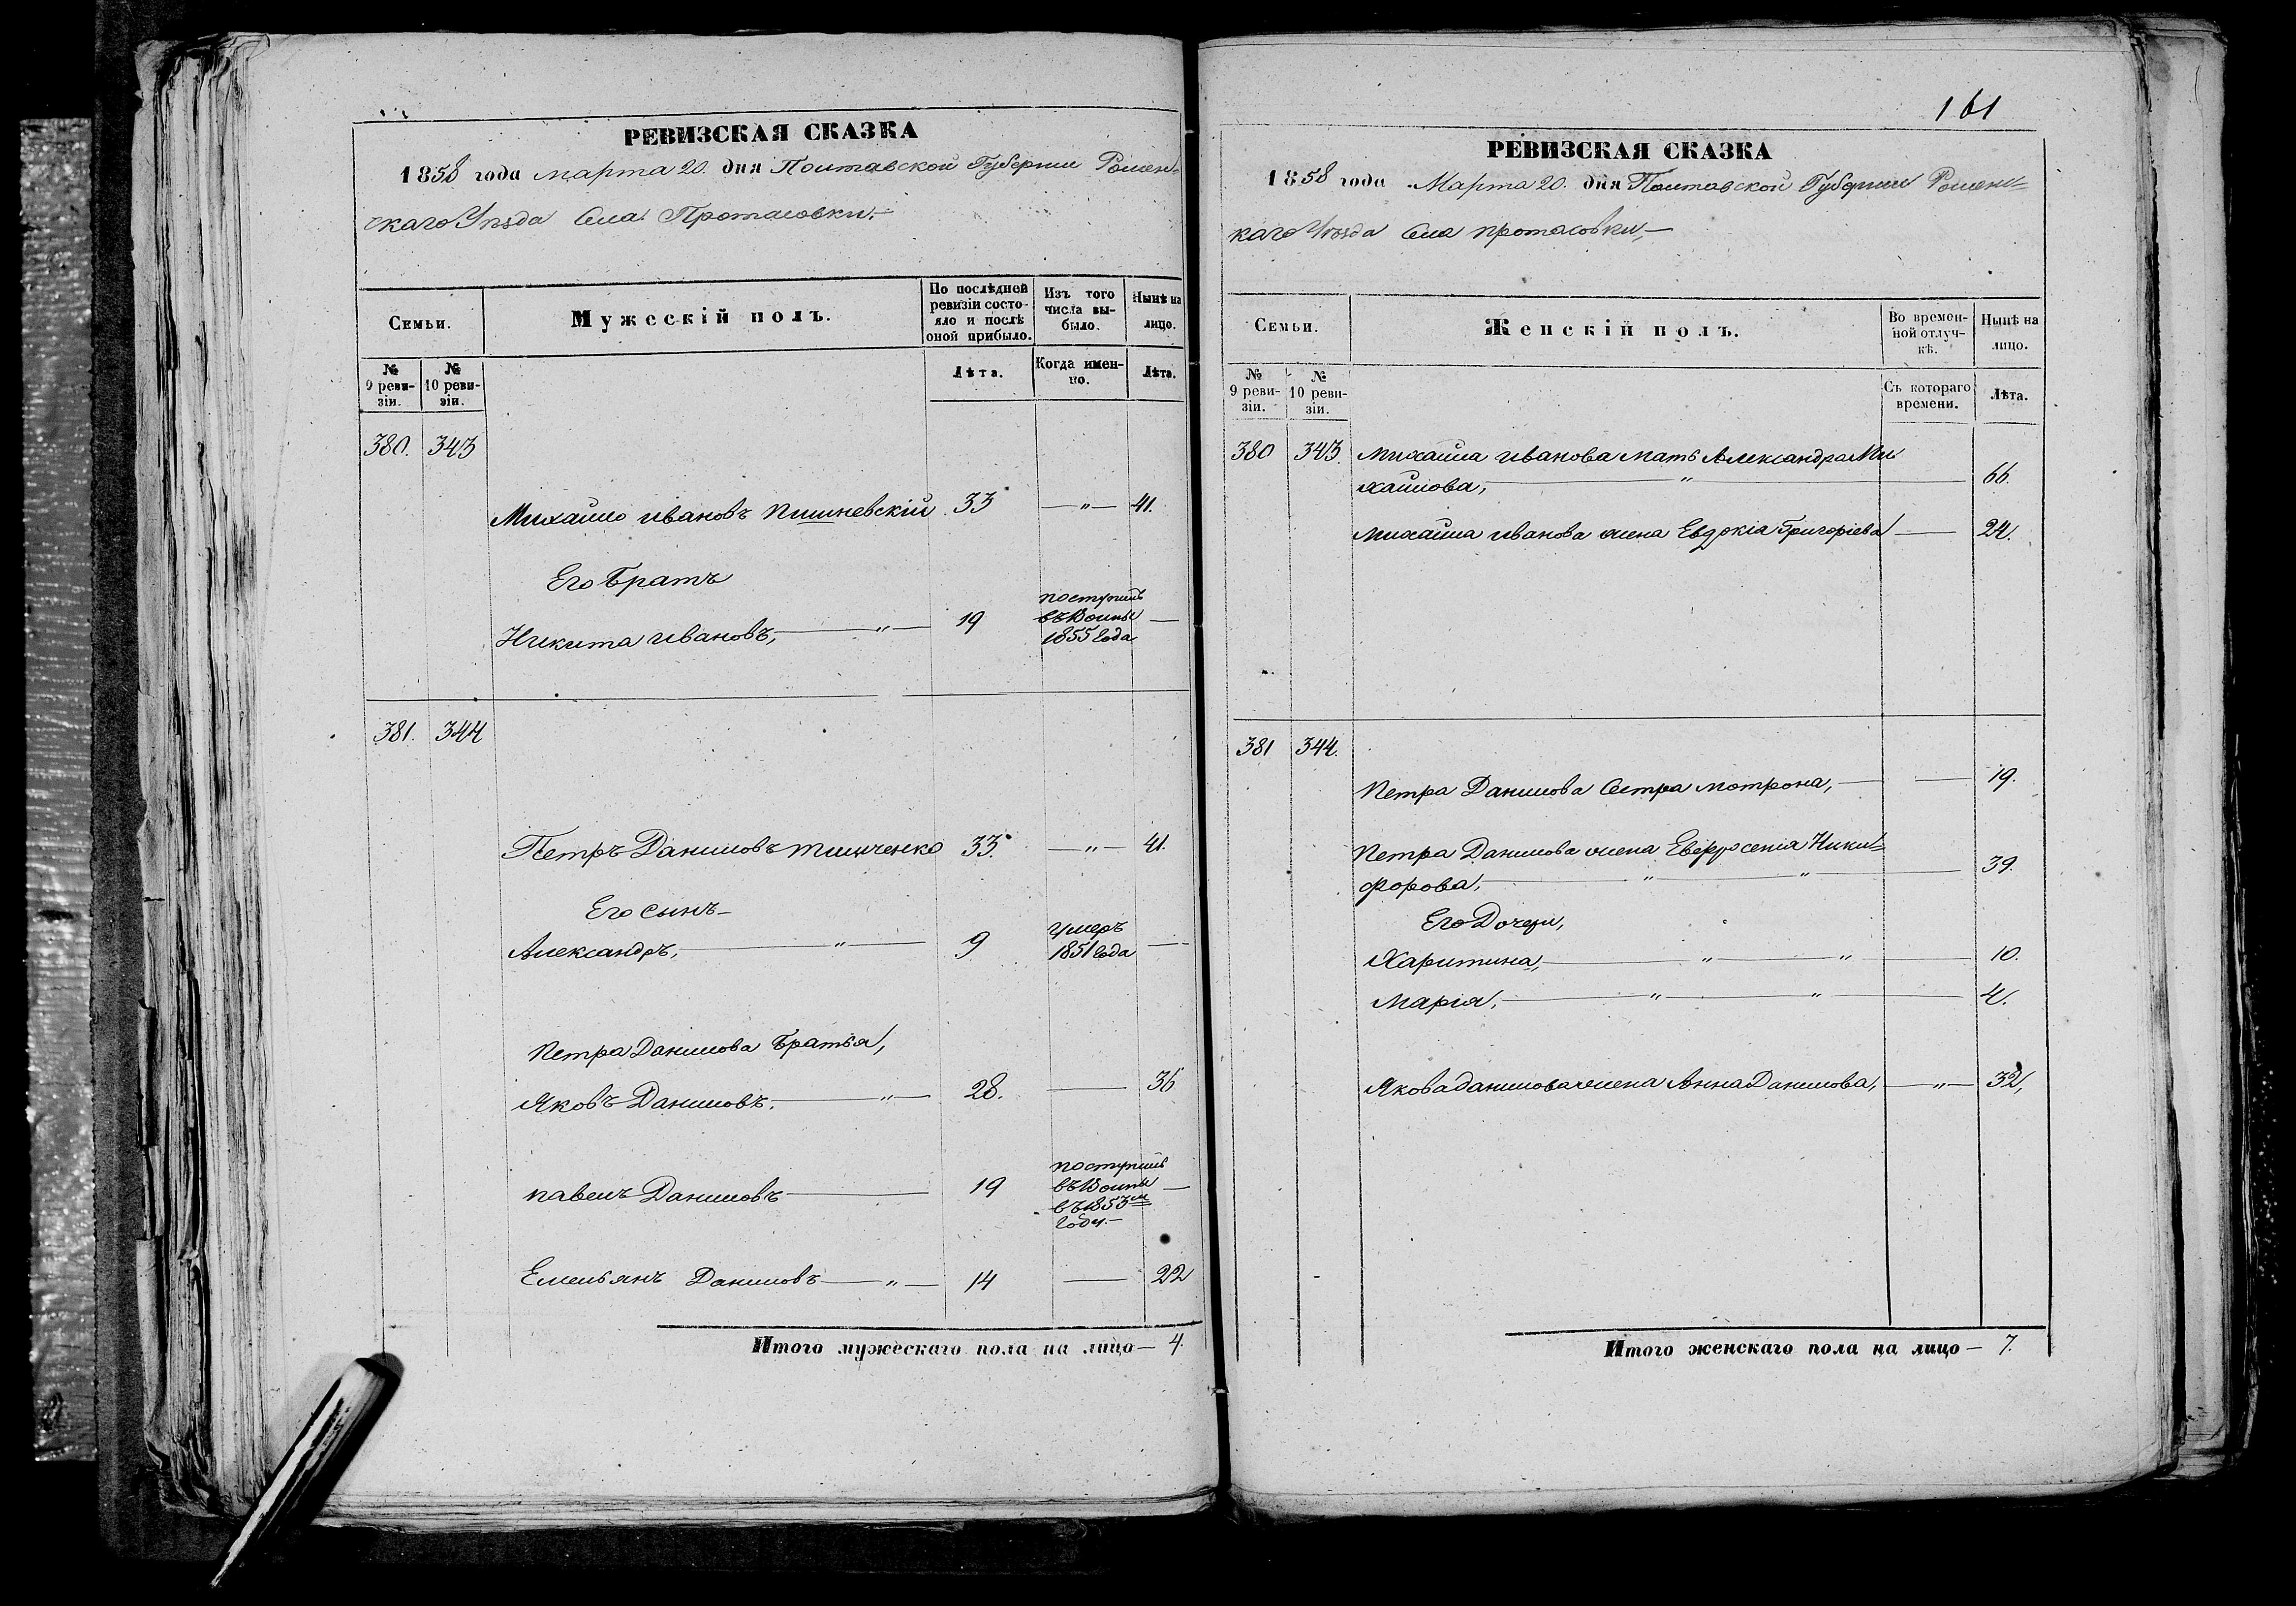 РЕВИЗСКАЯ СКАЗКА
1858 года марта 20. дня Полтавской Губернии Ромен-
скаго Уѣзда Села Протасовки.—
Семьи.
Мужескій полъ.
По послѣдней
ревизіи состо-
яло и послѣ
оной прибыло.
Изъ того
числа вы-
было.
Нынѣ на
лицо.
№
9 реви-
зіи.
№
10 реви-
зіи.
Лѣта.
Когда имен-
но.
Лѣта.
380. 343
Михайло Ивановъ 33 —"— 41.
Его братъ
Никита Ивановъ, —"— 19 поступилъ
въ Воины
1855 года —
381. 344
Петръ Даниловъ Тимченко 33. —"— 41.
Его сынъ—
Александръ, —"— 9 умеръ
1851 года —
Петра Данилова братья,
Яковъ Даниловъ. —"— 28. — 36
Павелъ Даниловъ — 19 поступилъ
въ Воины —
въ 1853мъ
году.—
Емельянъ Даниловъ —"— 14 — 22
Итого мужескаго пола на лицо — 4.
161
РЕВИЗСКАЯ СКАЗКА
1858 года Марта 20. дня Полтавской Губернии Ромен-
скаго Уѣзда Села Протасовки,—
Семьи.
Женскій полъ.
Во времен-
ной отлуч-
кѣ.
Нынѣ на
лицо.
№
9 реви-
зіи.
№
10 реви-
зіи.
Съ котораго
времени.
Лѣта.
380 343. Михайла Иванова мать Александра Ми-
хайлова, —"— 66.
Михайла Иванова жена Евдокія Григоріева — 24.
381 344.
Петра Данилова Сестра Мотрона, — — 19.
Петра Данилова жена Евфросенія Ники-
форова, —"—"— 39.
Его Дочери,
Харитина, —"—"— 10.
Марія, —"—"— 4.
Якова Данилова жена Анна Данилова, —"— 32,
Итого женскаго пола на лицо — 7.